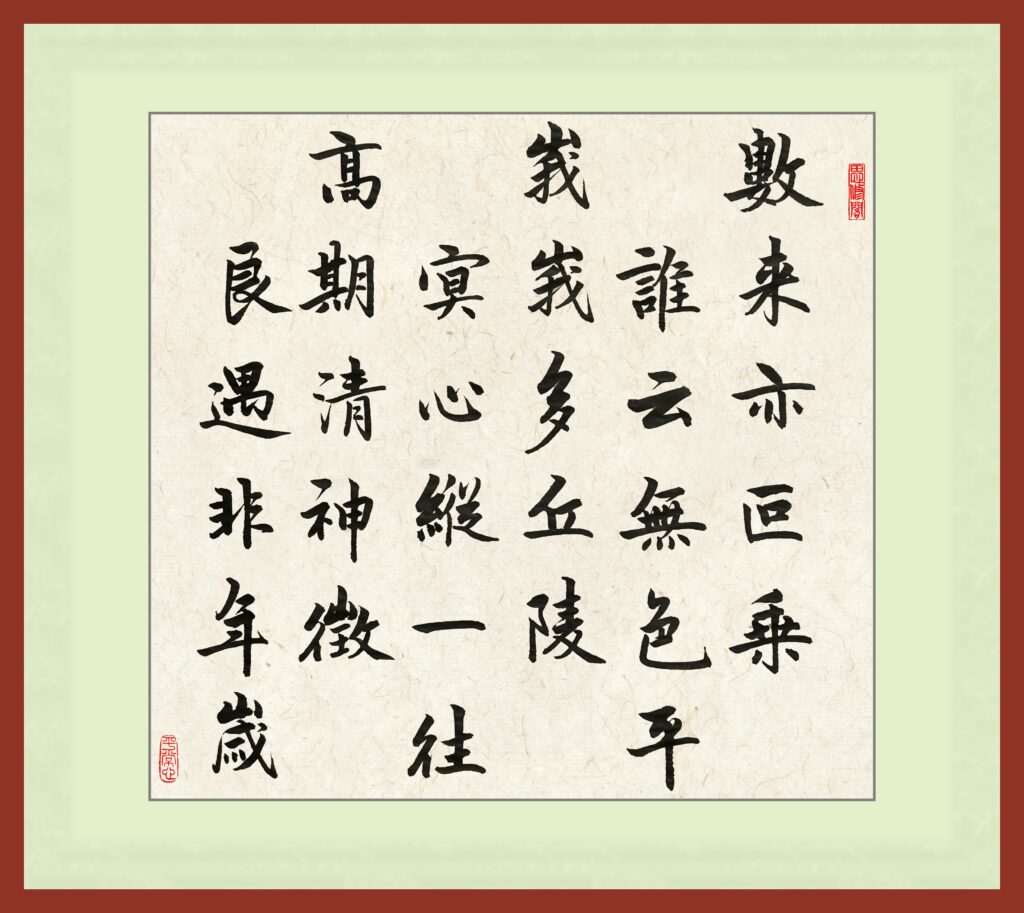 數来亦叵乘
誰云無色平
峩峩多丘陵
冥心縱一往
高期清神徵
良遇非年歲
平常心